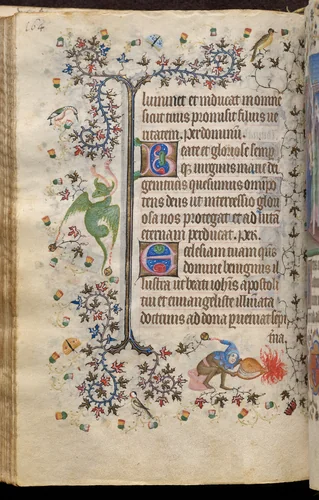 luminet et inducat in omnem
sicut tuus promisit filius ve
ritatem. per dominum.
Beate et gloriose semp
qz virginis marie dei
genitricis quesumus omnipo
tens deus ut intercessio glori
osa nos protegat et ad vitam
eternam perducat. Per.
Ecclesiam tuam qs
domine benignus il
lustra ut beati iohis apostoli
tui et euuangeliste illuminata
doctrinis ad dona perveniat sempi
terna.